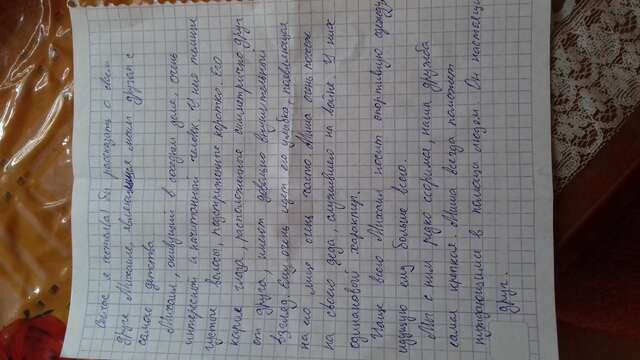 Сейчас я хотел(а) бы рассказать о своем
друге Михаиле, являющимся моим другом с
самого детства.
Михаил, живущий в соседнем доме, очень
интересный и начитанный человек. У него темные
густые волосы, подстриженные коротко. Его
карие глаза, расположенные симметрично друг
от друга, имеют довольно внушительный
взгляд. Ему очень идет его улыбка, появляющаяся
на его лице очень часто. Миша очень похож
на своего деда, служившего на войне. У них
одинаковый характер.
Чаще всего Михаил носит спортивную одежду,
идущую ему больше всего.
Мы с ним редко ссоримся, наша дружба
самая крепкая. Миша всегда поможет
нуждающимся в помощи людям. Он настоящий
друг.